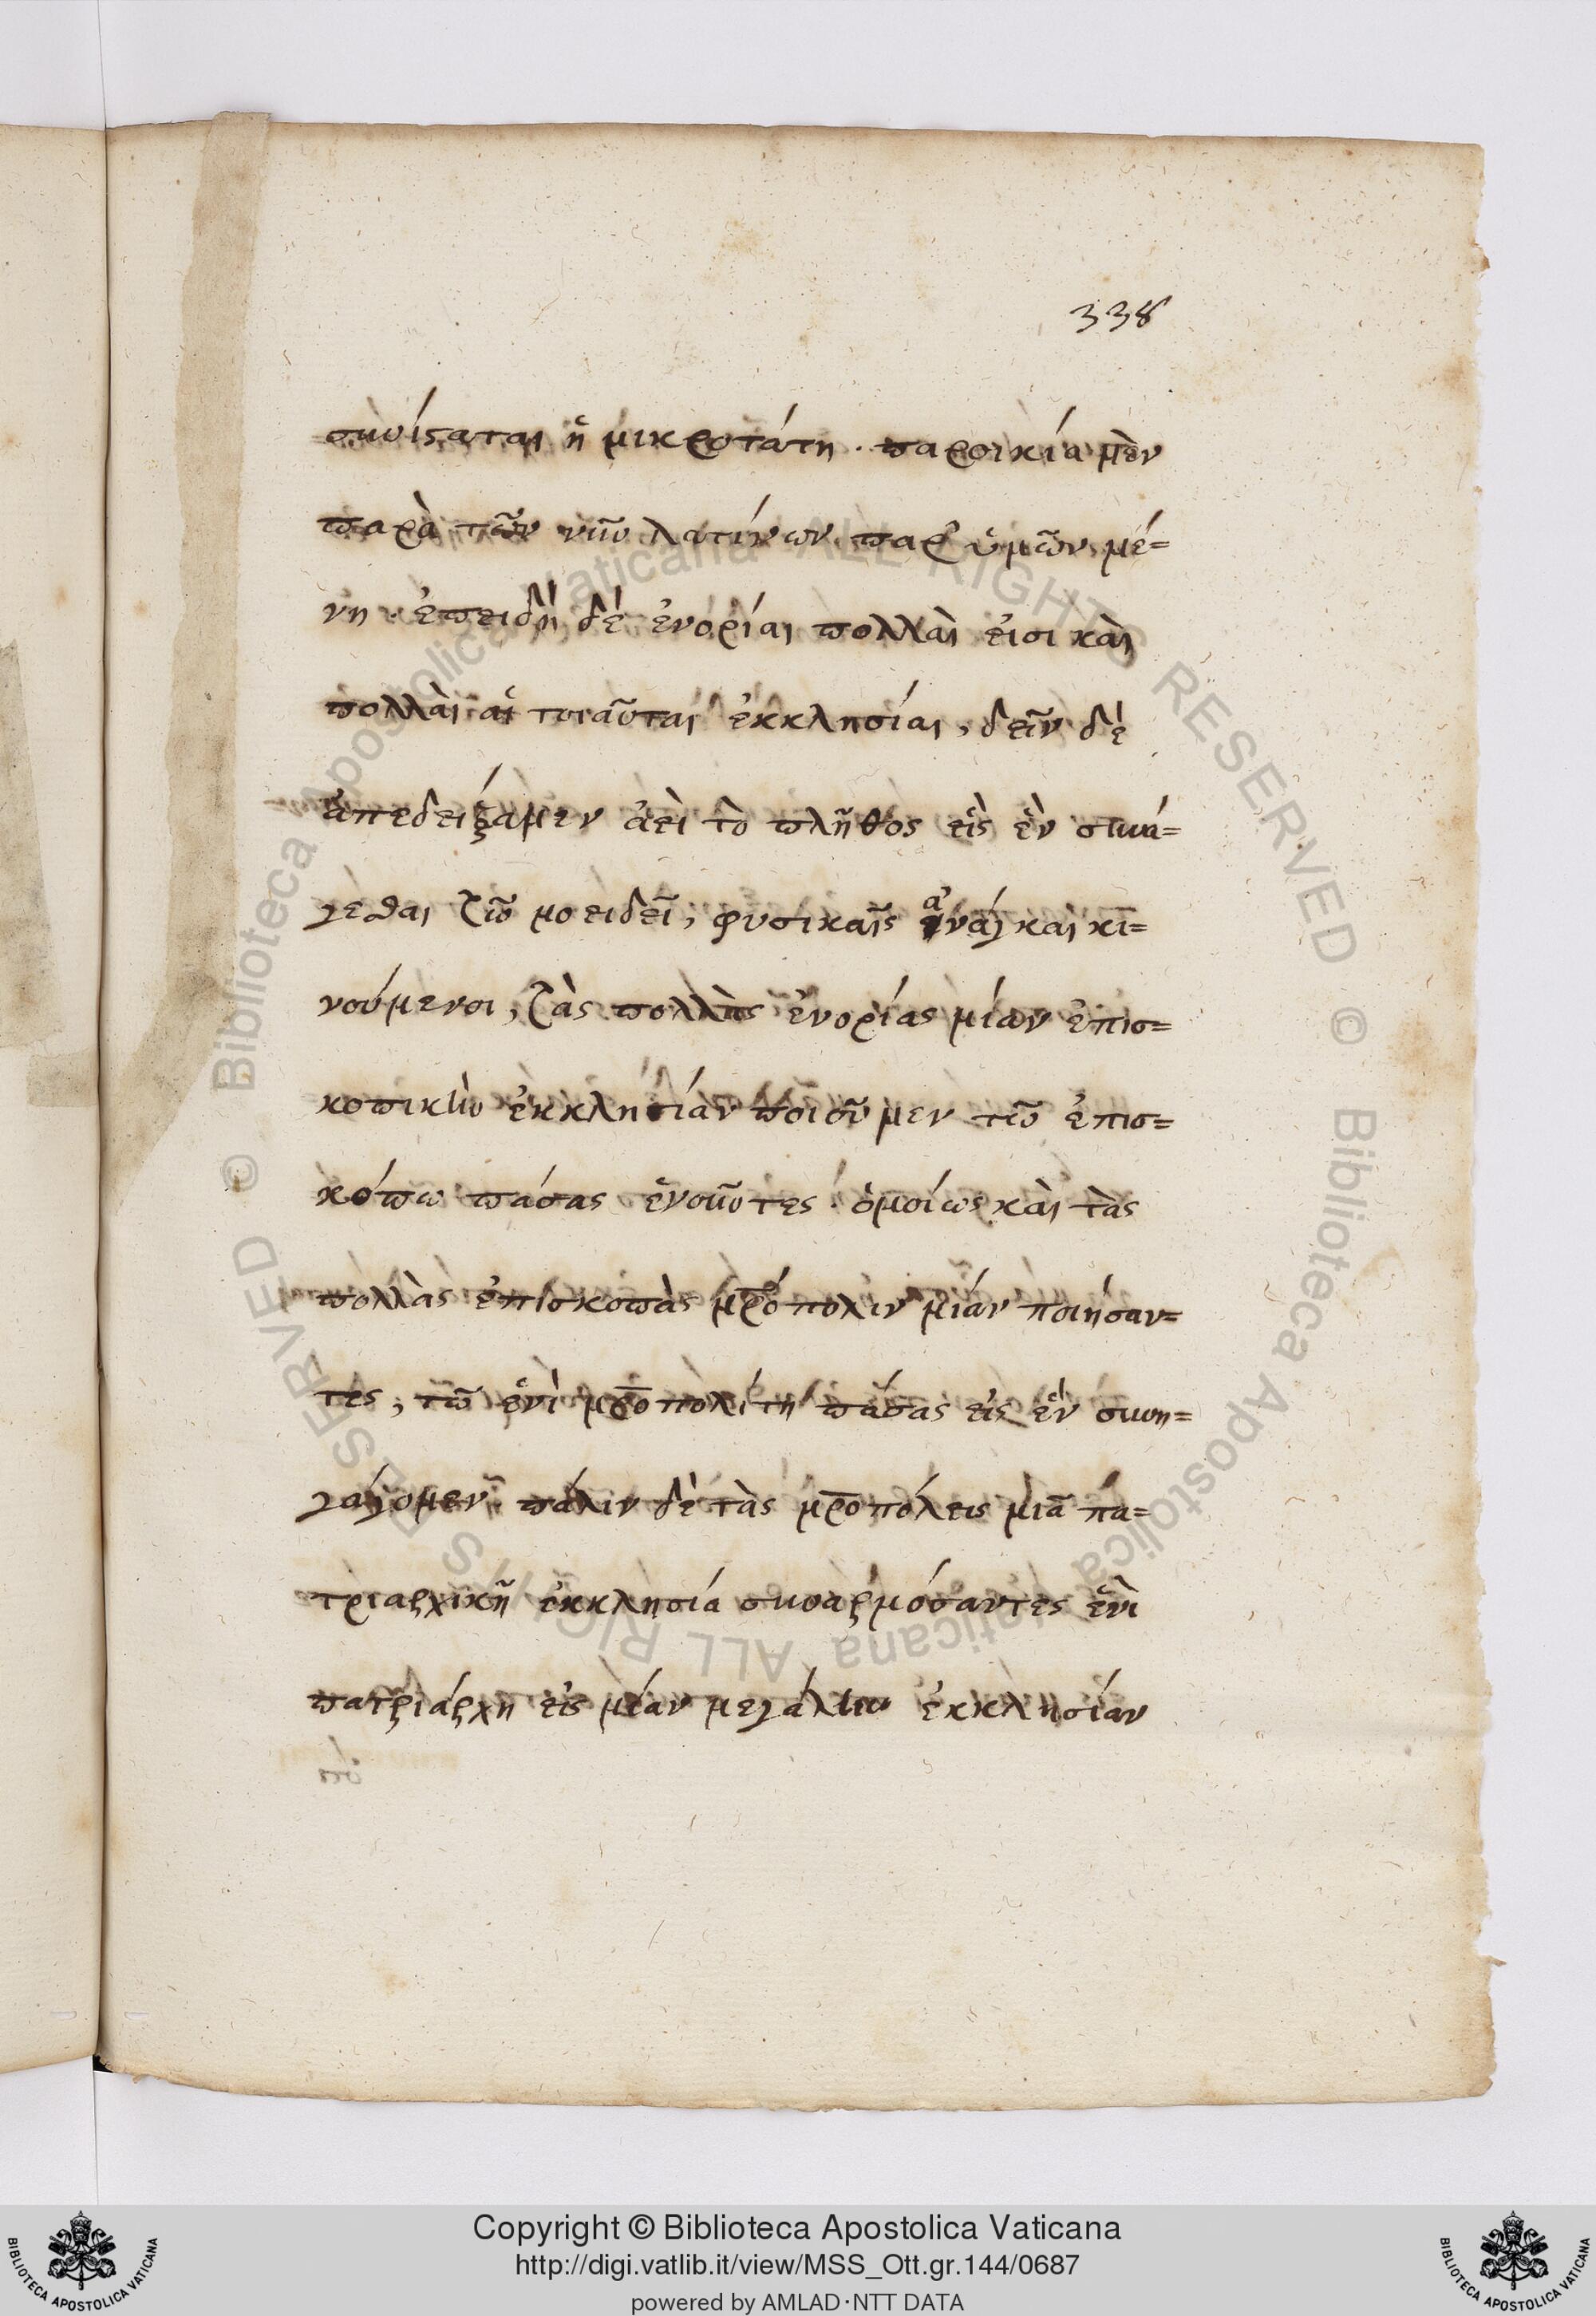 338
συνίσταται ἡ μικροτάτη. παροικία μὲν
παρὰ τῶν νῦν λατίνων παρ' ὑμῶν μέ=
νη. ἐπειδὴ δέ ἐνορίαι πολλαὶ εἰσι καὶ
πολλαὶ αἱ τοιαῦται ἐκκλησίαι, δεῖν δέ
ἀπεδείξαμεν ἀεὶ τὸ πλῆθος εἰς ἓν συνά=
γεσθαι τῶ μοειδεῖ, φυσικαῖς ἀνάγκαι κι=
νούμενοι, τὰς πολλὰς ἐνορίας μίαν ἐπισ=
κοπικὴν ἐκκλησίαν ποιοῦμεν τῶ ἐπισ=
κόπω πάσας ἑνοῦντες. ὁμοίως καὶ τὰς
πολλὰς ἐπισκοπὰς μρόπολιν μίαν ποιήσαν=
τες, τῶ ἑνὶ μροπολίτη πάσας εἰς ἓν συνη=
γάγομεν. πάλιν δὲ τὰς μροπόλεις μιᾶ πα=
τριαρχικῆ ἐκκλησία συναρμόσαντες ἑνὶ
πατριάρχη εἰς μίαν μεγάλην ἐκκλησίαν
Copyright © Biblioteca Apostolica Vaticana
http://digi.vatlib.it/view/MSS_Ott.gr.144/0687
powered by AMLAD·NTT DATA
BIBLIOTECA APOSTOLICA VATICANA
BIBLIOTECA APOSTOLICA VATICANA
© Biblioteca Apostolica Vaticana ALL RIGHTS RESERVED
© Biblioteca Apostolica Vaticana ALL RIGHTS RESERVED